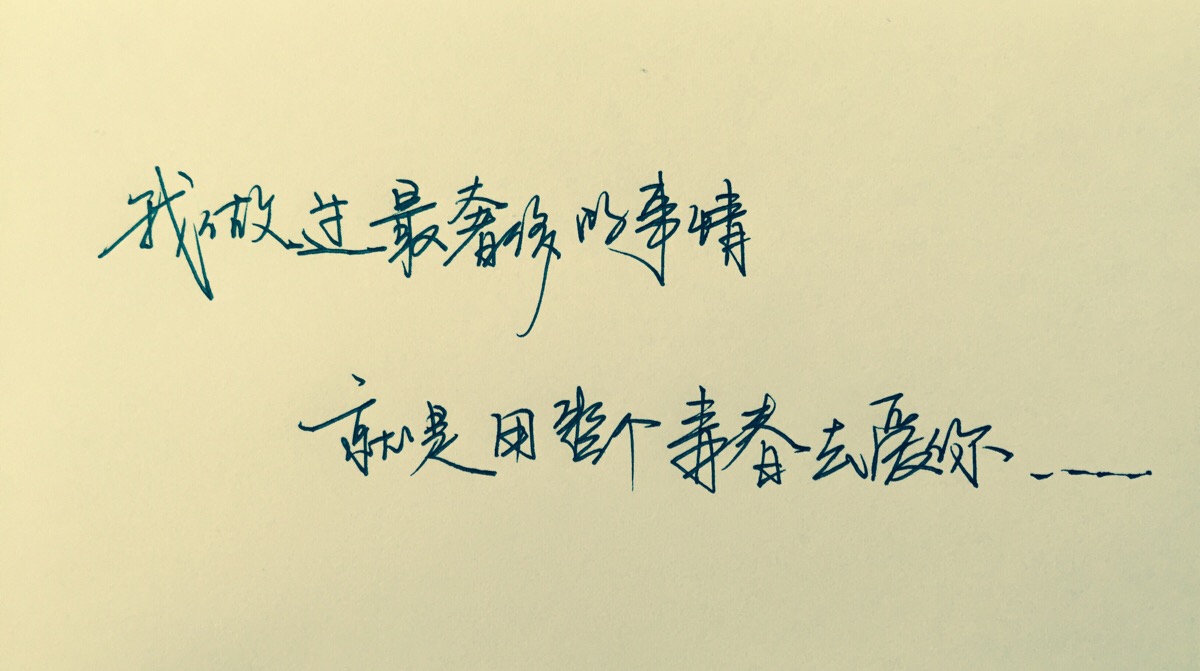 我做过最奢侈的事情
就是用整个青春去爱你……